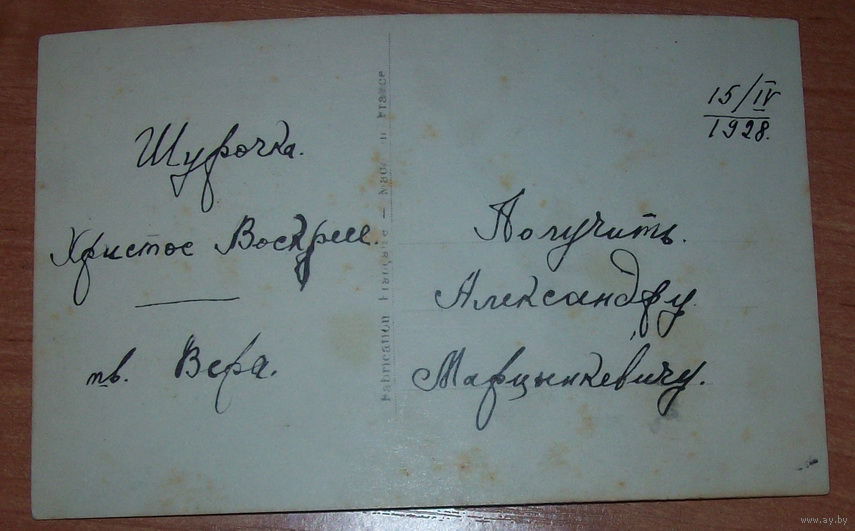 Шурочка.
Христос Воскресе.
тв. Вера.
Fabrication Française — Made in France
15/IV
1928.
Получить.
Александру
Марцынкевичу.
www.ay.by